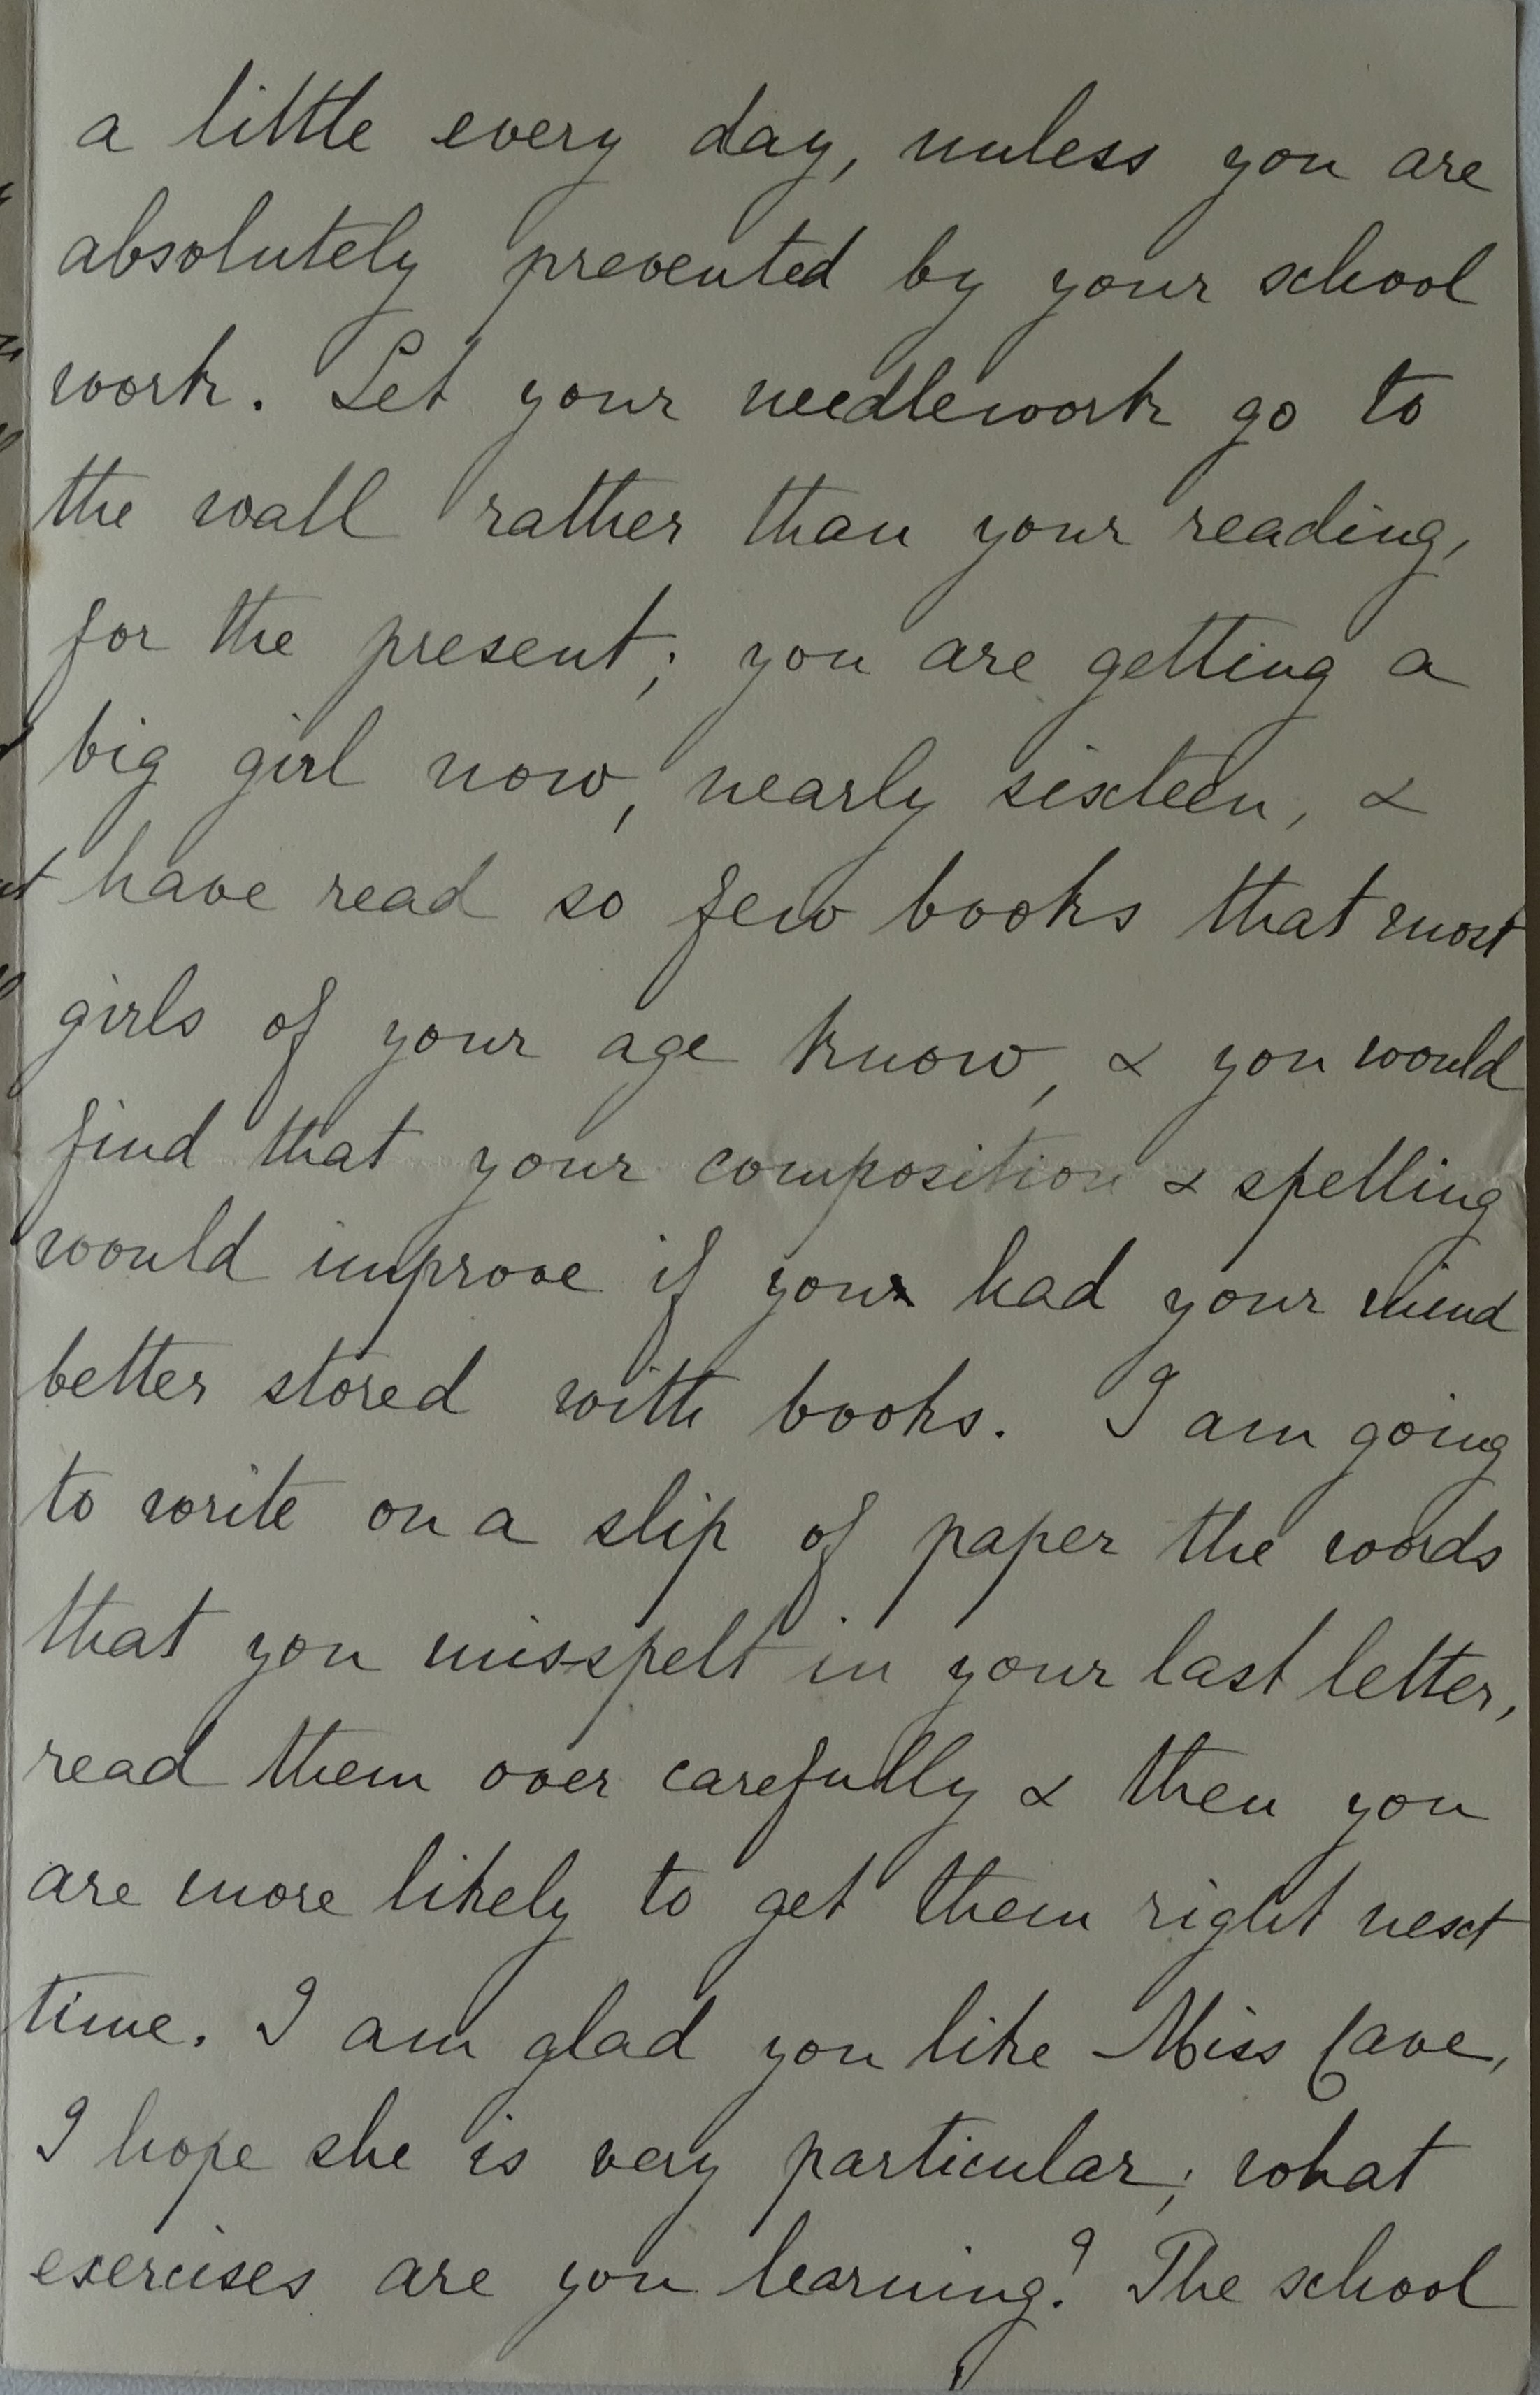 a little every day, unless you are
absolutely prevented by your school
work. Let your needlework go to
the wall rather than your reading,
for the present; you are getting a
big girl now, nearly sixteen, &
have read so few books that most
girls of your age know, & you would
find that your composition & spelling
would improve if you had your mind
better stored with books. I am going
to write on a slip of paper the words
that you misspelt in your last letter,
read them over carefully & then you
are more likely to get them right next
time. I am glad you like Miss Cave,
I hope she is very particular; what
exercises are you learning? The school